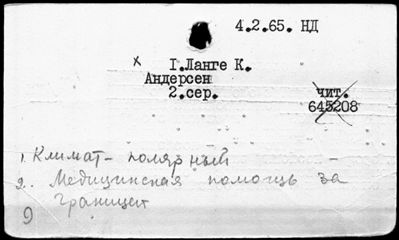 4.2.65. НД
x 1.Ланге К.
Андерсен
2.сер.
чит.
645208
1. Климат - полярный -
2.. Медицинская помощь за
границей
9